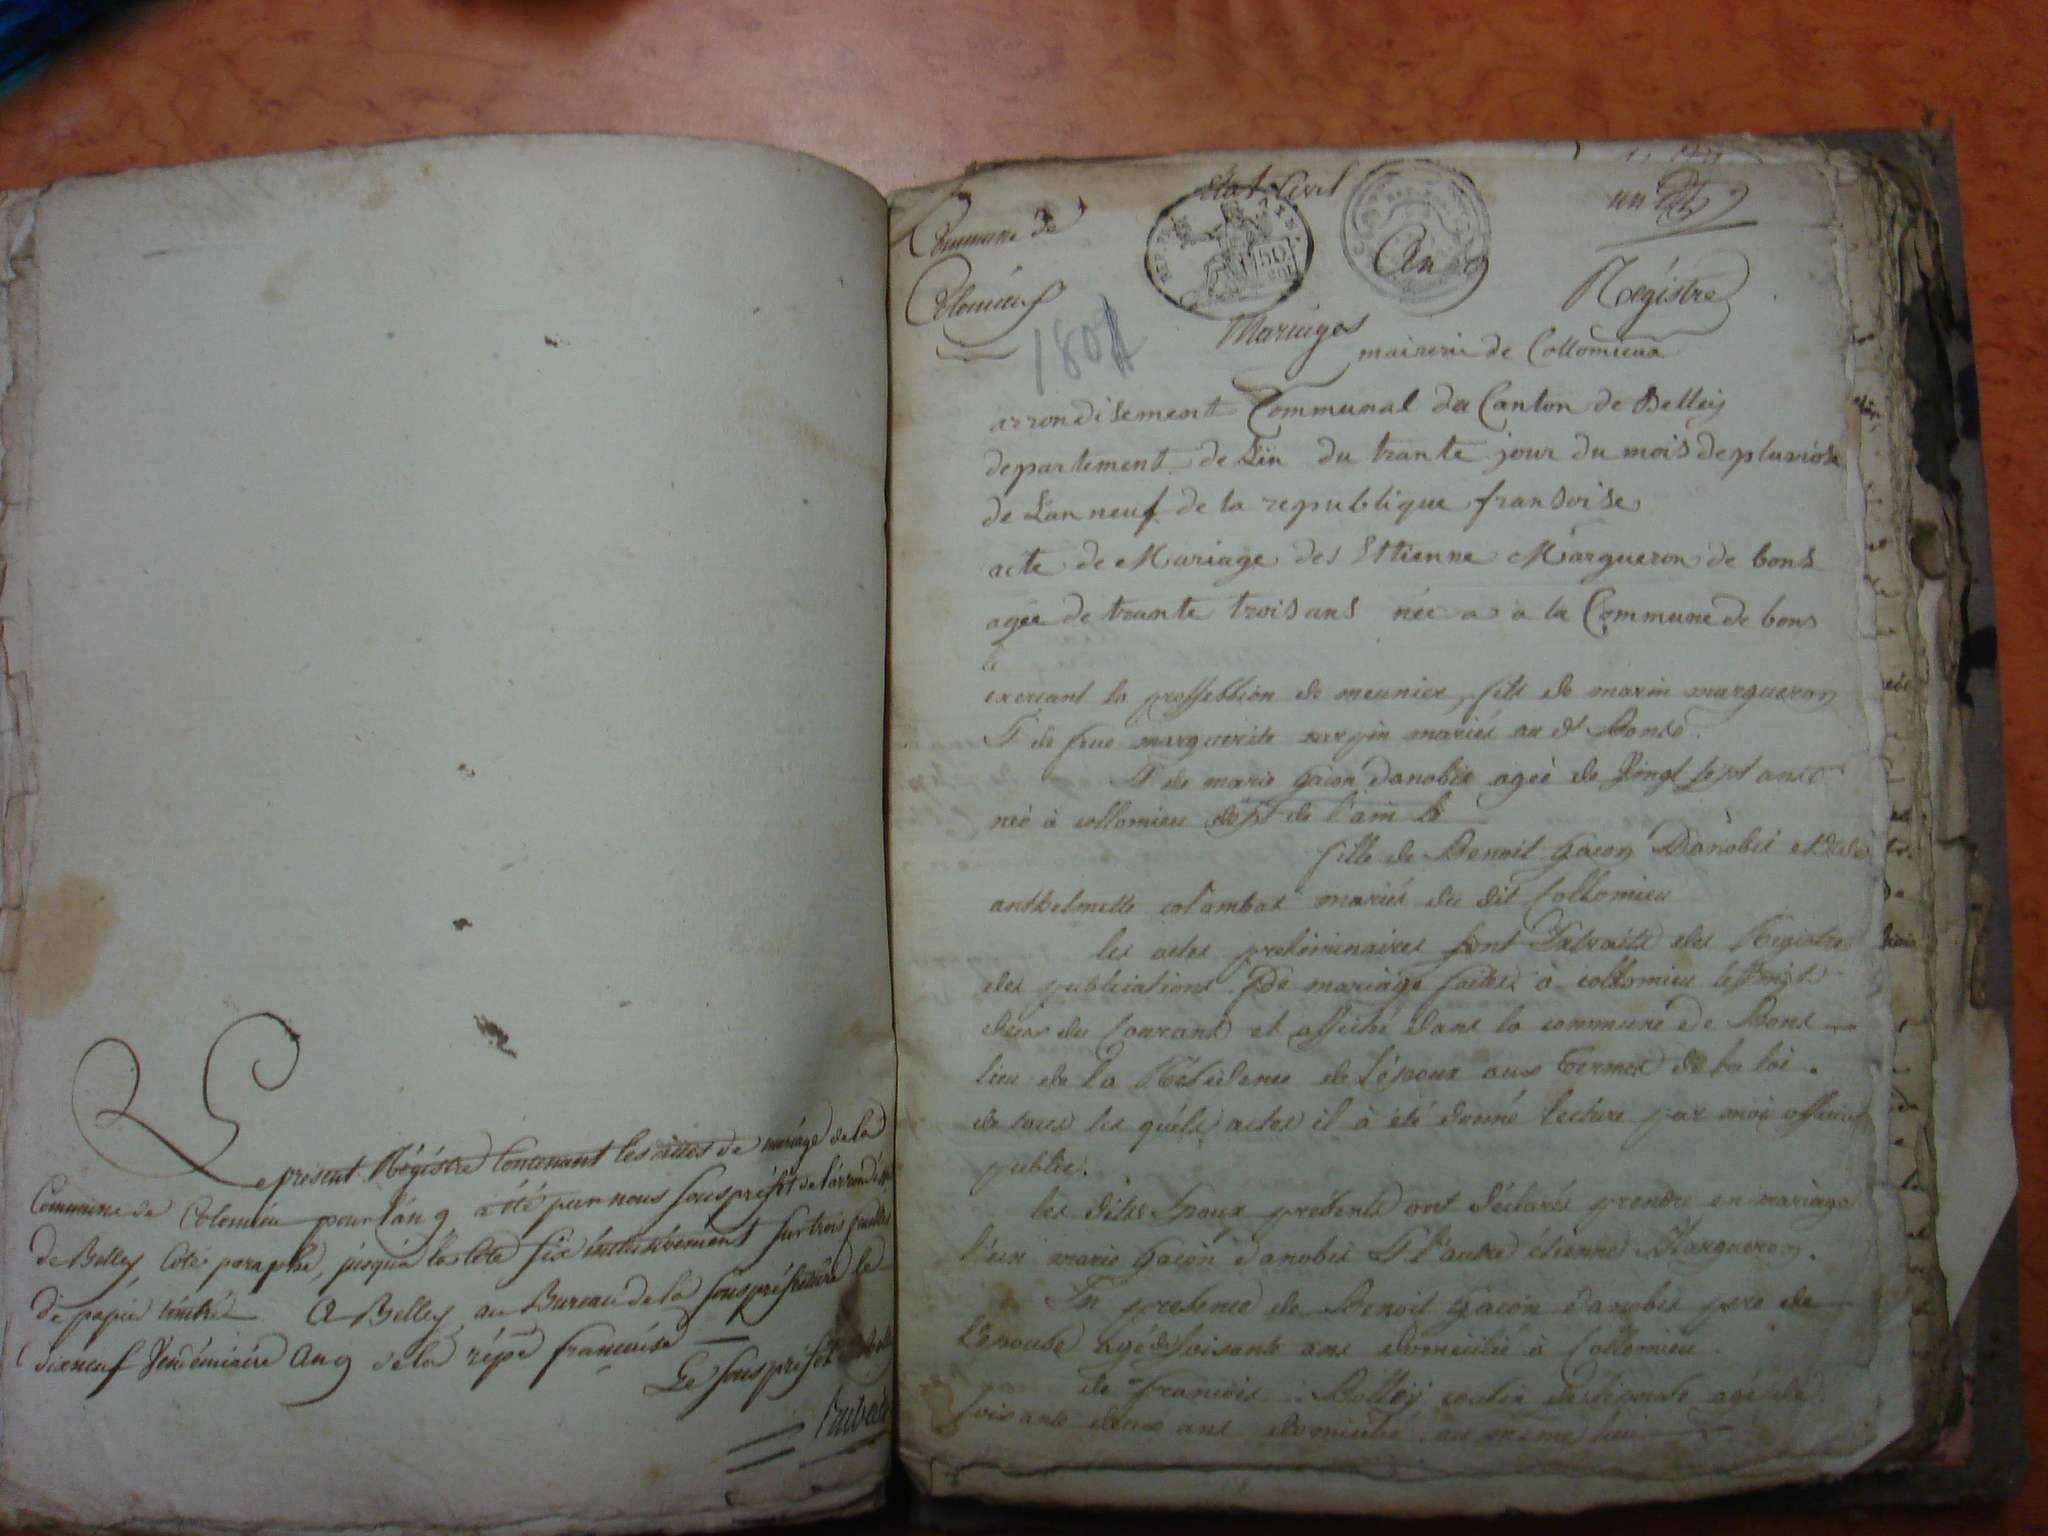 Le present Régistre Contenant les actes de mariage de la
Commune de Colomieu pour l'an 9 a été par nous sous préfet de l'arrond
de Belley coté paraphé, jusqu'à la cote six inclusivement sur trois feuilles
de papier timbré A Belley au Bureau de la sous préfecture le
dixneuf Vendémiaire an 9 de la répe française
Le sous préfet
Etat Civil
Commune de
Colomieu
REP. FRA
50
cent
An 9
un
Régistre
1801
Mariages
mairerie de Collomieux
arrondisement Communal du Canton de Belley
departement de Lin du trante jour du mois de pluviose
de Lan neuf de la republique fransoise
acte de Mariage des Ettienne Margueron de bons
agée de trante trois ans née a a la Commune de bons
le
exercant la proffession de meunier, fils de marin margueron
& de feue marguerite mariés au d Bons.
& de marie gacon Danobis agée de Vingt sept ans
née à collomieu dépt de l'ain le
fille de Benoit gacon Danobis et de
anthelmette colombat mariés du dit Collomieu
les actes preliminaires sont Extraits des Registre
des publications De mariage faites à collomieu le vingt
deux du Courant et affiché dans la commune de Bons
lieu de la Résidence de l'époux aux termes de la loi.
de tous les quéls actes il à été donné lecture par moi officier
public.
les dits Epoux présents ont déclarés prendre en mariage
l'un marie gacon danobis & l'autre étienne Margueron.
En presence de Benoit gacon danobis pere de
L'epouse agé de soisante ans domicilié à Collomieu.
de francois Bolley cousin de l'épouse agé de
soisante deux ans domicilié au même lieu